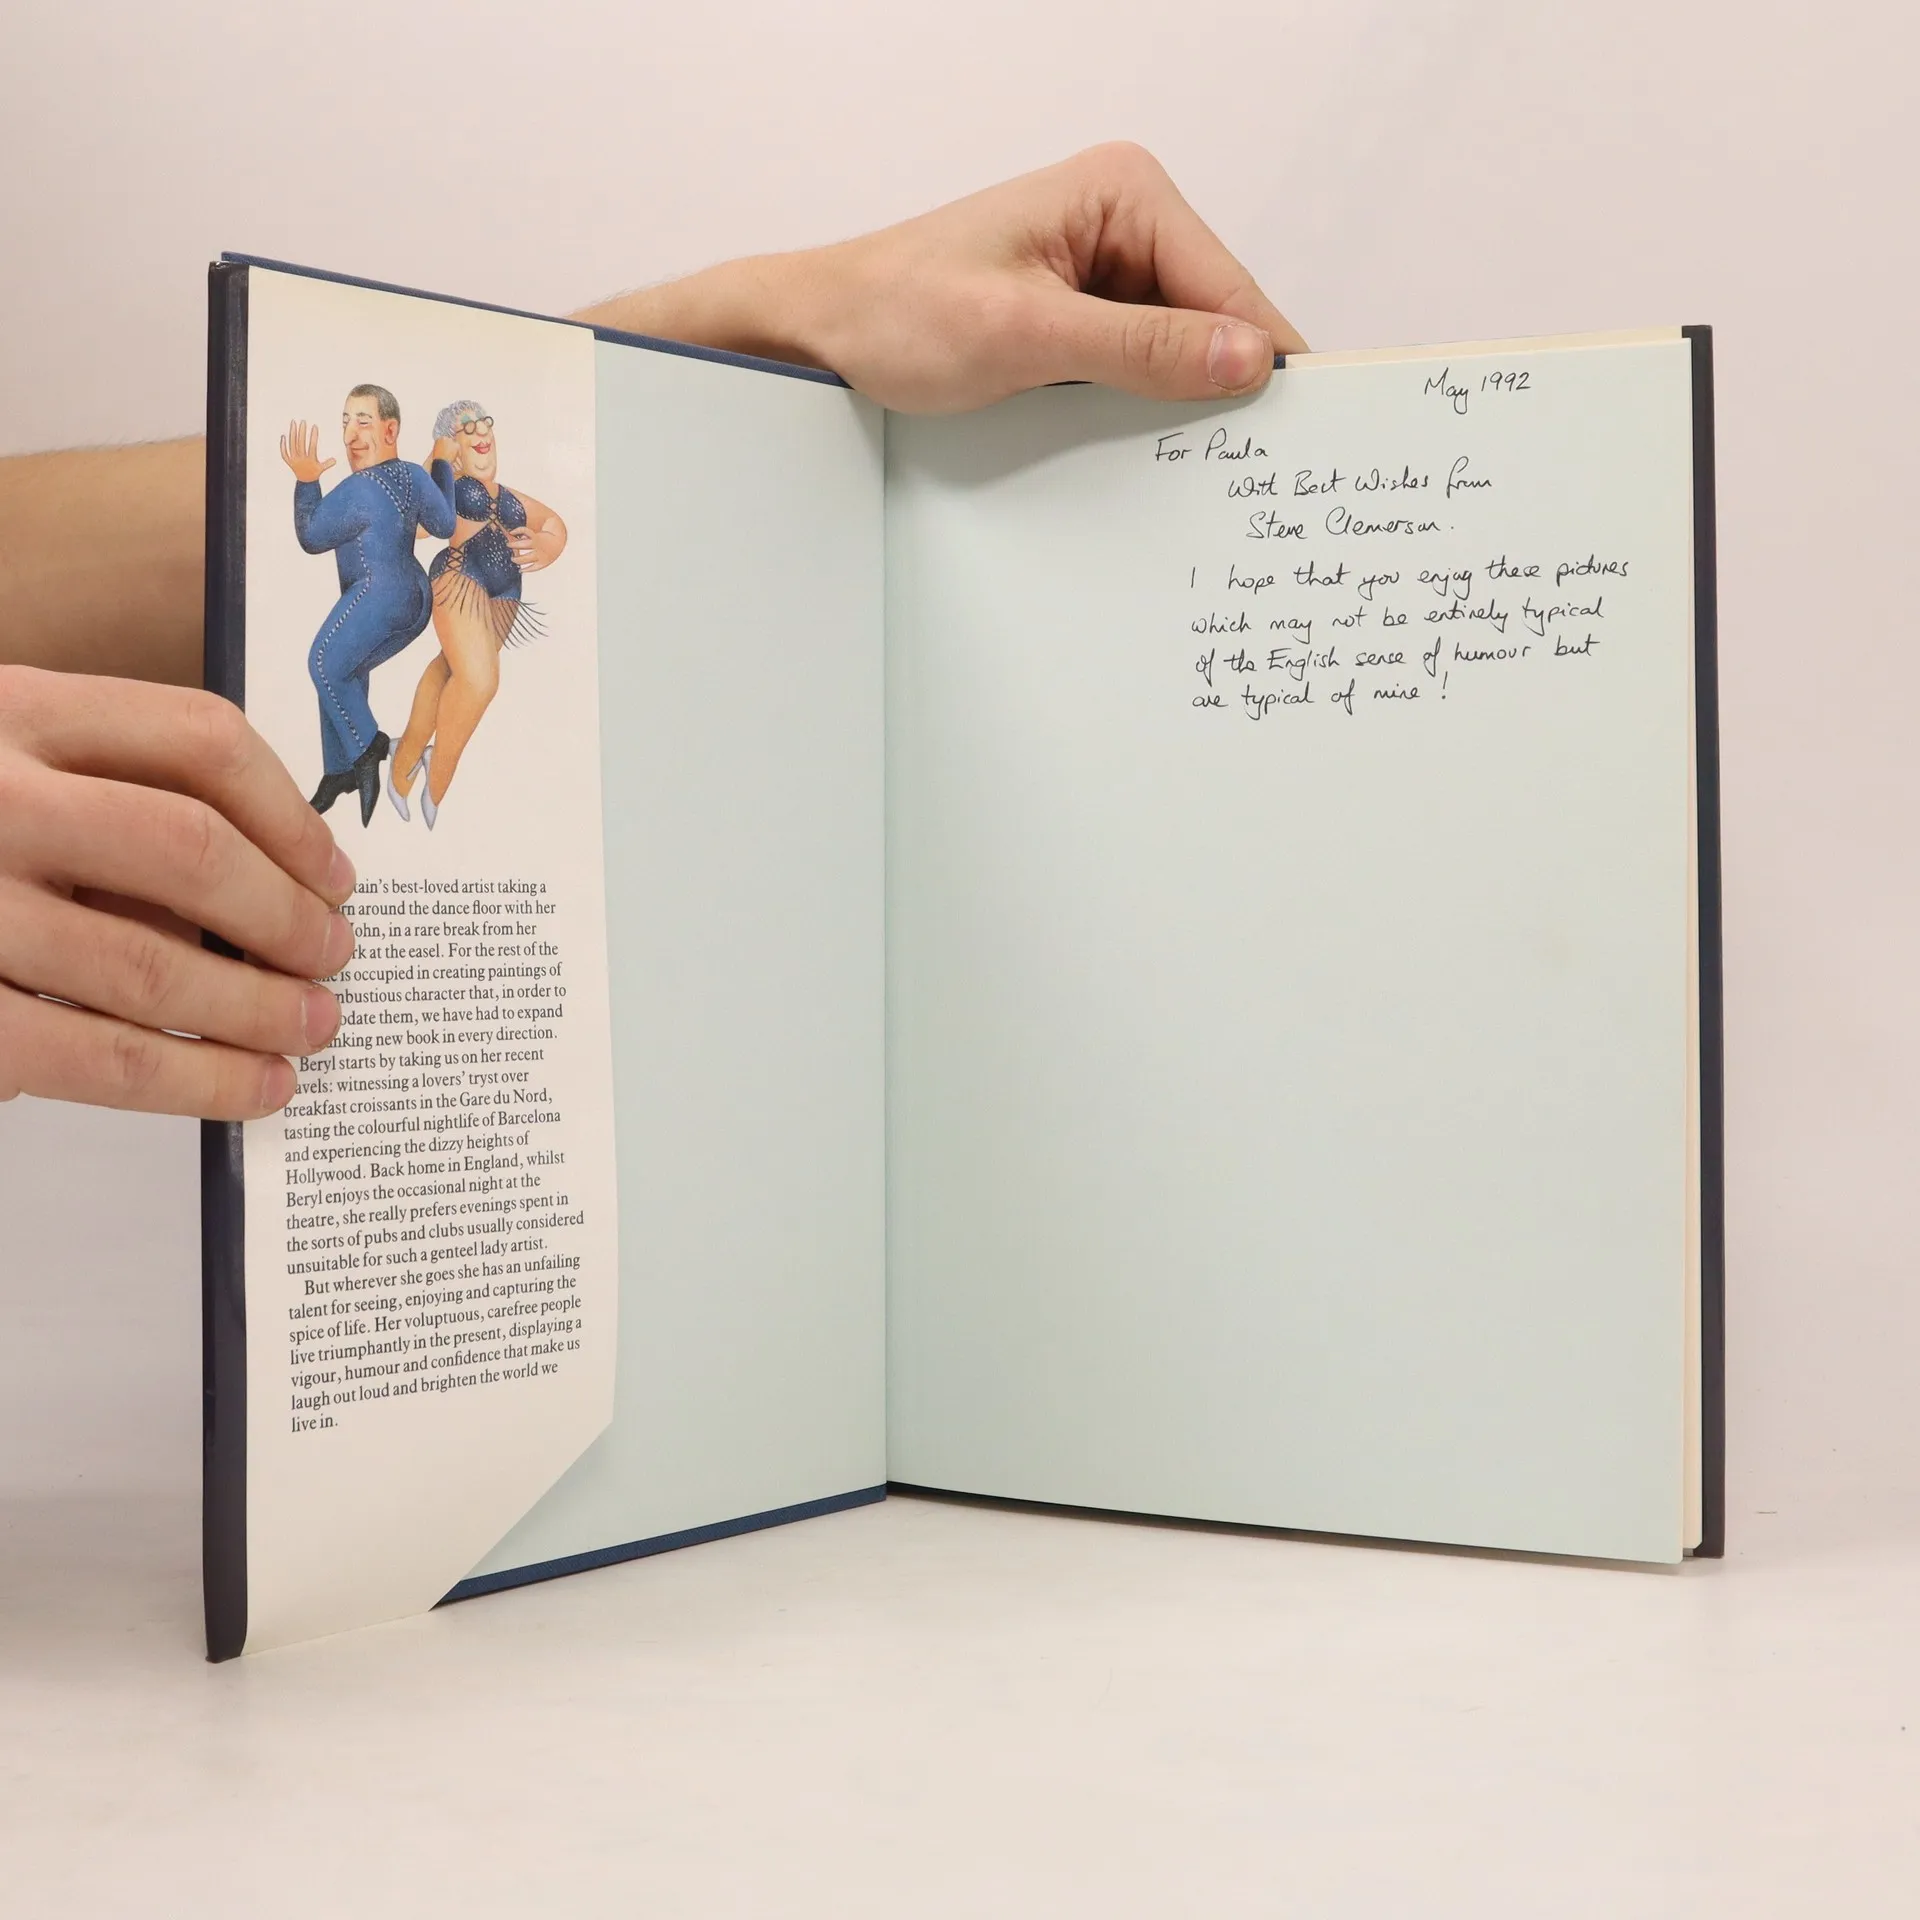 tain's best-loved artist taking a
rn around the dance floor with her
John, in a rare break from her
rk at the easel. For the rest of the
is occupied in creating paintings of
mbustious character that, in order to
odate them, we have had to expand
anking new book in every direction.
Beryl starts by taking us on her recent
avels: witnessing a lovers' tryst over
breakfast croissants in the Gare du Nord,
tasting the colourful nightlife of Barcelona
and experiencing the dizzy heights of
Hollywood. Back home in England, whilst
Beryl enjoys the occasional night at the
theatre, she really prefers evenings spent in
the sorts of pubs and clubs usually considered
unsuitable for such a genteel lady artist.
But wherever she goes she has an unfailing
talent for seeing, enjoying and capturing the
spice of life. Her voluptuous, carefree people
live triumphantly in the present, displaying a
vigour, humour and confidence that make us
laugh out loud and brighten the world we
live in.
May 1992
For Paula
With Best Wishes from
Steve Clemerson.
I hope that you enjoy these pictures
which may not be entirely typical
of the English sense of humour but
are typical of mine!